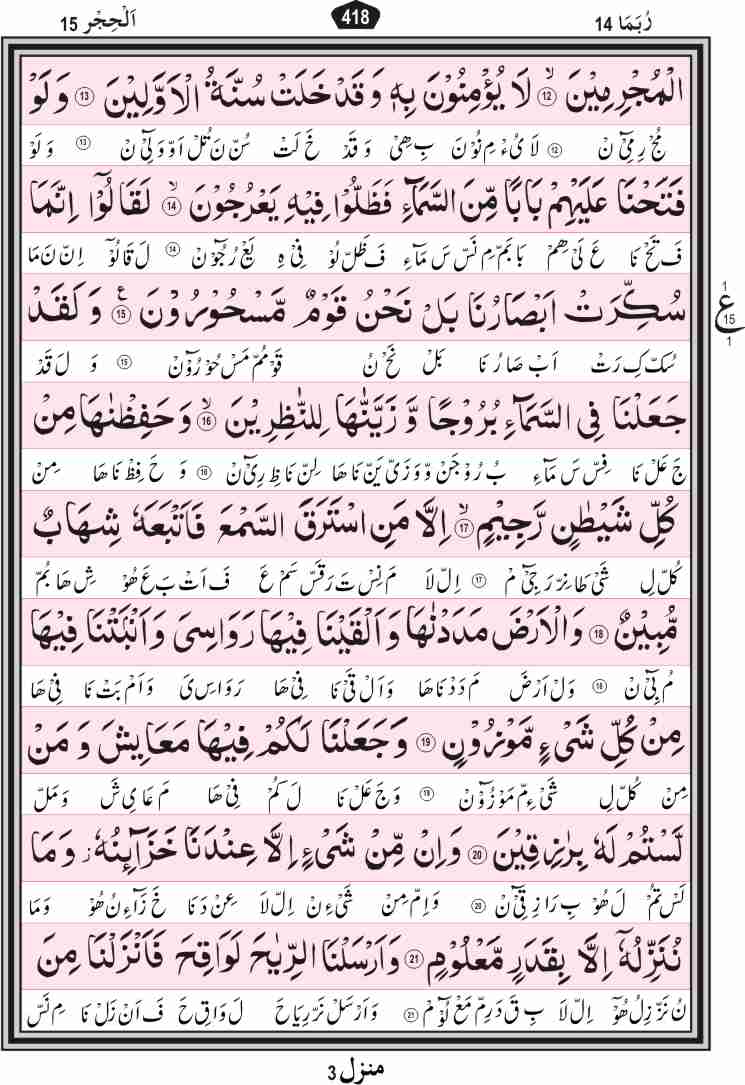 رُبَمَا 14
418
اَلْحِجْر 15
الْمُجْرِمِيْنَ ۙ‏ 12 لَا يُؤْمِنُوْنَ بِهٖ وَ قَدْ خَلَتْ سُنَّةُ الْاَوَّلِيْنَ 13 وَ لَوْ
مُجْ رِمِىْٓ نْ 12 لَا يُؤْ مِ نُوْنَ بِ هِىْ وَ قَدْ خَ لَتْ سُنْ نَ تُلْ اَوْ وَ لِىْٓ نْ 13 وَ لَوْ
فَتَحْنَا عَلَيْهِمْ بَابًا مِّنَ السَّمَآءِ فَظَلُّوْا فِيْهِ يَعْرُجُوْنَ ۙ 14 لَقَالُوْٓا اِنَّمَا
فَ تَحْ نَا عَ لَىْ هِمْ بَا بَمْ مِ نَسْ سَ مَآءِ فَ ظَلْ لُوْ فِىْ هِ يَعْ رُ جُوْٓ نْ 14 لَ قَا لُوْٓ اِنْ نَ مَا
سُكِّرَتْ اَبْصَارُنَا بَلْ نَحْنُ قَوْمٌ مَّسْحُوْرُوْنَ ع 15 وَ لَقَدْ
سُكْ كِ رَتْ اَبْ صَا رُ نَا بَلْ نَحْ نُ قَوْ مُمْ مَسْ حُوْ رُوْٓ نْ 15 وَ لَ قَدْ
ع 1 15 1
جَعَلْنَا فِى السَّمَآءِ بُرُوْجًا وَّ زَيَّنّٰهَا لِلنّٰظِرِيْنَ ۙ 16 وَ حَفِظْنٰهَا مِنْ
جَ عَلْ نَا فِسْ سَ مَآءِ بُ رُوْ جَنْ وَ وَ زَىْ يَنْ نَا هَا لِنْ نَا ظِ رِىْٓ نْ 16 وَ حَ فِظْ نَا هَا مِنْ
كُلِّ شَيْطٰنٍ رَّجِيْمٍ ۙ 17 اِلَّا مَنِ اسْتَرَقَ السَّمْعَ فَاَتْبَعَهٗ شِهَابٌ
كُلْ لِ شَىْ طَا نِرْ رَ جِىْٓ مْ 17 اِلْ لَا مَ نِسْ تَ رَ قَسْ سَمْ عَ فَ اَتْ بَ عَ هُوْ شِ هَا بُمْ
مُّبِيْنٌ 18 وَ الْاَرْضَ مَدَدْنٰهَا وَ اَلْقَيْنَا فِيْهَا رَوَاسِىَ وَ اَنْۢبَتْنَا فِيْهَا
مُ بِىْٓ نْ 18 وَلْ اَرْ ضَ مَ دَدْ نَا هَا وَ اَلْ قَىْ نَا فِىْ هَا رَ وَا سِ ىَ وَ اَمْ بَتْ نَا فِىْ هَا
مِنْ كُلِّ شَىْءٍ مَّوْزُوْنٍ 19 وَ جَعَلْنَا لَكُمْ فِيْهَا مَعَايِشَ وَ مَنْ
مِنْ كُلْ لِ شَىْ ءِمْ مَوْ زُوْٓ نْ 19 وَ جَ عَلْ نَا لَ كُمْ فِىْ هَا مَ عَا يِ شَ وَ مَلْ
لَّسْتُمْ لَهٗ بِرٰزِقِيْنَ 20 وَ اِنْ مِّنْ شَىْءٍ اِلَّا عِنْدَنَا خَزَآئِنُهٗ وَ مَا
لَسْ تُمْ لَ هُوْ بِ رَا زِ قِىْٓ نْ 20 وَ اِمْ مِنْ شَىْ ءِ نْ اِلْ لَا عِنْ دَ نَا خَ زَآءِ نُ هُوْ وَ مَا
نُنَزِّلُهٗٓ اِلَّا بِقَدَرٍ مَّعْلُوْمٍ 21 وَ اَرْسَلْنَا الرِّيٰحَ لَوَاقِحَ فَاَنْزَلْنَا مِنَ
نُ نَزْ زِ لُ هُوْٓ اِلْ لَا بِ قَ دَ رِمْ مَعْ لُوْٓ مْ 21 وَ اَرْ سَلْ نَرْ رِ يَا حَ لَ وَا قِ حَ فَ اَنْ زَلْ نَا مِ نَسْ
منزل 3